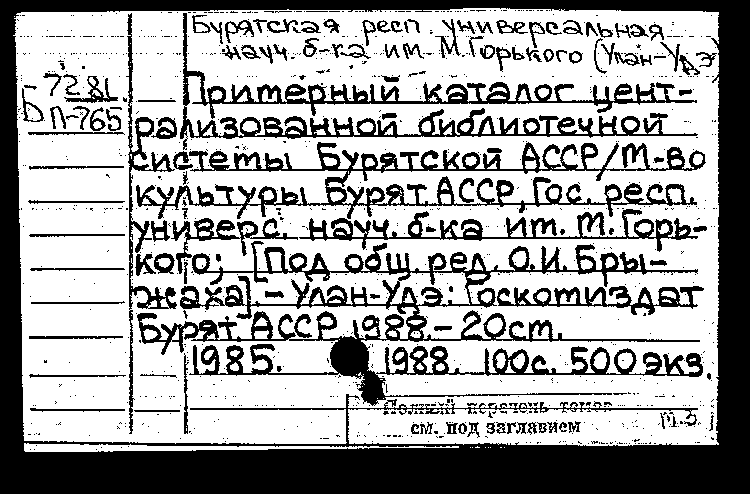 Бурятская респ. универсальная
науч. б-ка им. М.Горького (Улан-Удэ)
Б 72.81
П-765
Примерный каталог цент-
рализованной библиотечной
системы Бурятской АССР/М-во
культуры Бурят. АССР, Гос. респ.
универс. науч. б-ка им. М. Горь-
кого; [Под общ. ред. О.И. Бры-
жаха]. – Улан-Удэ: Госкомиздат
Бурят. АССР 1988. – 20 см.
1985. 1988. 100с. 500 экз.
Полный перечень томов
см. под заглавием
т.3